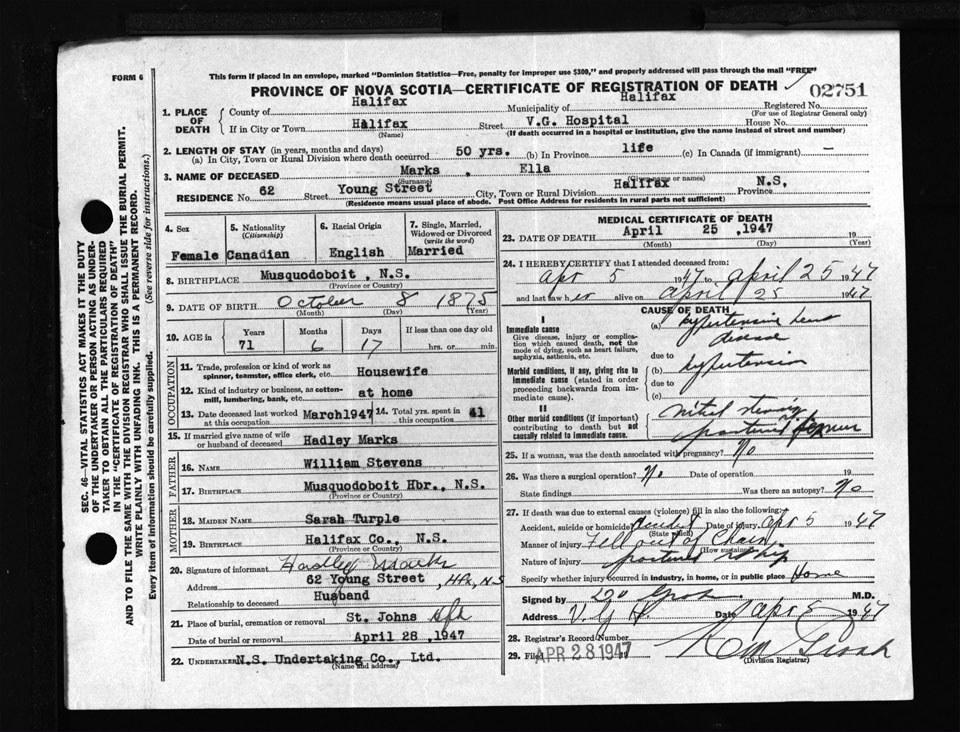 FORM 6
This form if placed in an envelope, marked "Dominion Statistics—Free, penalty for improper use $300," and properly addressed will pass through the mail "FREE"
PROVINCE OF NOVA SCOTIA—CERTIFICATE OF REGISTRATION OF DEATH
02751
1. PLACE OF DEATH
County of Halifax Municipality of Halifax Registered No.
(For use of Registrar General only)
If in City or Town Halifax Street V.G. Hospital House No.
(Name) (If death occurred in a hospital or institution, give the name instead of street and number)
2. LENGTH OF STAY (in years, months and days)
(a) In City, Town or Rural Division where death occurred 50 yrs. (b) In Province life (c) In Canada (if immigrant) —
3. NAME OF DECEASED Marks , Ella
(Surname) (Given name or names)
RESIDENCE No. 62 Street Young Street City, Town or Rural Division Halifax Province N.S.
(Residence means usual place of abode. Post Office Address for residents in rural parts not sufficient)
4. Sex
Female
5. Nationality
(Citizenship)
Canadian
6. Racial Origin
English
7. Single, Married, Widowed or Divorced
(write the word)
Married
8. BIRTHPLACE Musquodoboit , N.S.
(Province or Country)
9. DATE OF BIRTH October 8 1875
(Month) (Day) (Year)
10. AGE in Years Months Days If less than one day old
71 6 17 hrs. or min.
OCCUPATION
11. Trade, profession or kind of work as spinner, teamster, office clerk, etc. Housewife
12. Kind of industry or business, as cotton-mill, lumbering, bank, etc. at home
13. Date deceased last worked at this occupation March1947 14. Total yrs. spent in 41
15. If married give name of wife or husband of deceased Hadley Marks
FATHER
16. NAME William Stevens
17. BIRTHPLACE Musquodoboit Hbr., N.S.
(Province or Country)
MOTHER
18. MAIDEN NAME Sarah Turple
19. BIRTHPLACE Halifax Co., N.S.
(Province or Country)
20. Signature of informant Hadley Marks
Address 62 Young Street , Hfx, N.S
Relationship to deceased Husband
21. Place of burial, cremation or removal St. Johns Hfx
Date of burial or removal April 28 ,1947
22. UNDERTAKER N.S. Undertaking Co., Ltd.
(Name and address)
MEDICAL CERTIFICATE OF DEATH
23. DATE OF DEATH April 25 ,1947 19
(Month) (Day) (Year)
24. I HEREBY CERTIFY that I attended deceased from:
Apr 5 1947 to April 25 1947
and last saw her alive on April 25 1947
CAUSE OF DEATH
I
Immediate cause
Give disease, injury or complication which caused death, not the mode of dying, such as heart failure, asphyxia, asthenia, etc.
(a) hypertensive heart disease
due to
Morbid conditions, if any, giving rise to immediate cause (stated in order proceeding backwards from immediate cause).
(b) hypertension
due to
(c)
II
Other morbid conditions (if important) contributing to death but not causally related to immediate cause.
fractured femur
25. If a woman, was the death associated with pregnancy? No
26. Was there a surgical operation? No Date of operation 19
State findings Was there an autopsy? No
27. If death was due to external causes (violence) fill in also the following:
Accident, suicide or homicide Accident Date of injury Apr 5 1947
(State which)
Manner of injury Fell out of Chair
(How sustained)
Nature of injury fractured hip
Specify whether injury occurred in industry, in home, or in public place Home
Signed by M.D.
Address V.G.H. Date Apr 1947
28. Registrar's Record Number
29. Filed APR 28 1947 19
(Division Registrar)
SEC. 46—VITAL STATISTICS ACT MAKES IT THE DUTY
OF THE UNDERTAKER OR PERSON ACTING AS UNDER-
TAKER TO OBTAIN ALL THE PARTICULARS REQUIRED
IN THE "CERTIFICATE OF REGISTRATION OF DEATH"
AND TO FILE THE SAME WITH THE DIVISION REGISTRAR WHO SHALL ISSUE THE BURIAL PERMIT.
WRITE PLAINLY WITH UNFADING INK. THIS IS A PERMANENT RECORD.
Every item of information should be carefully supplied. (See reverse side for instructions.)